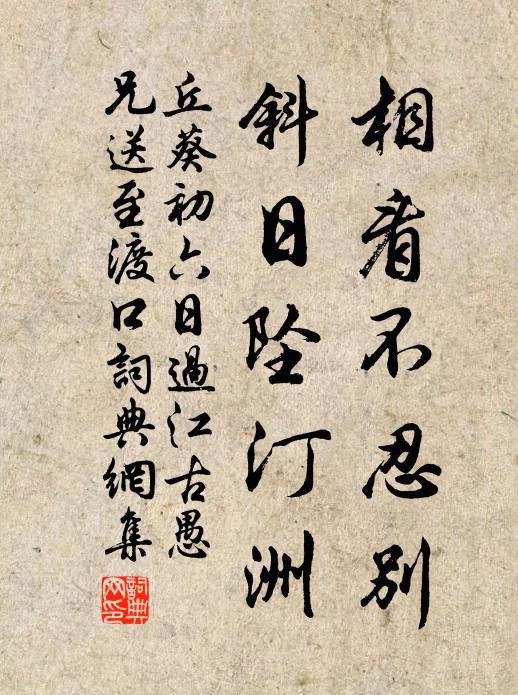 相看不忍别
斜日坠汀洲
丘葵初六日過江古愚
兄送至渡口詞典網集
詞典
网印